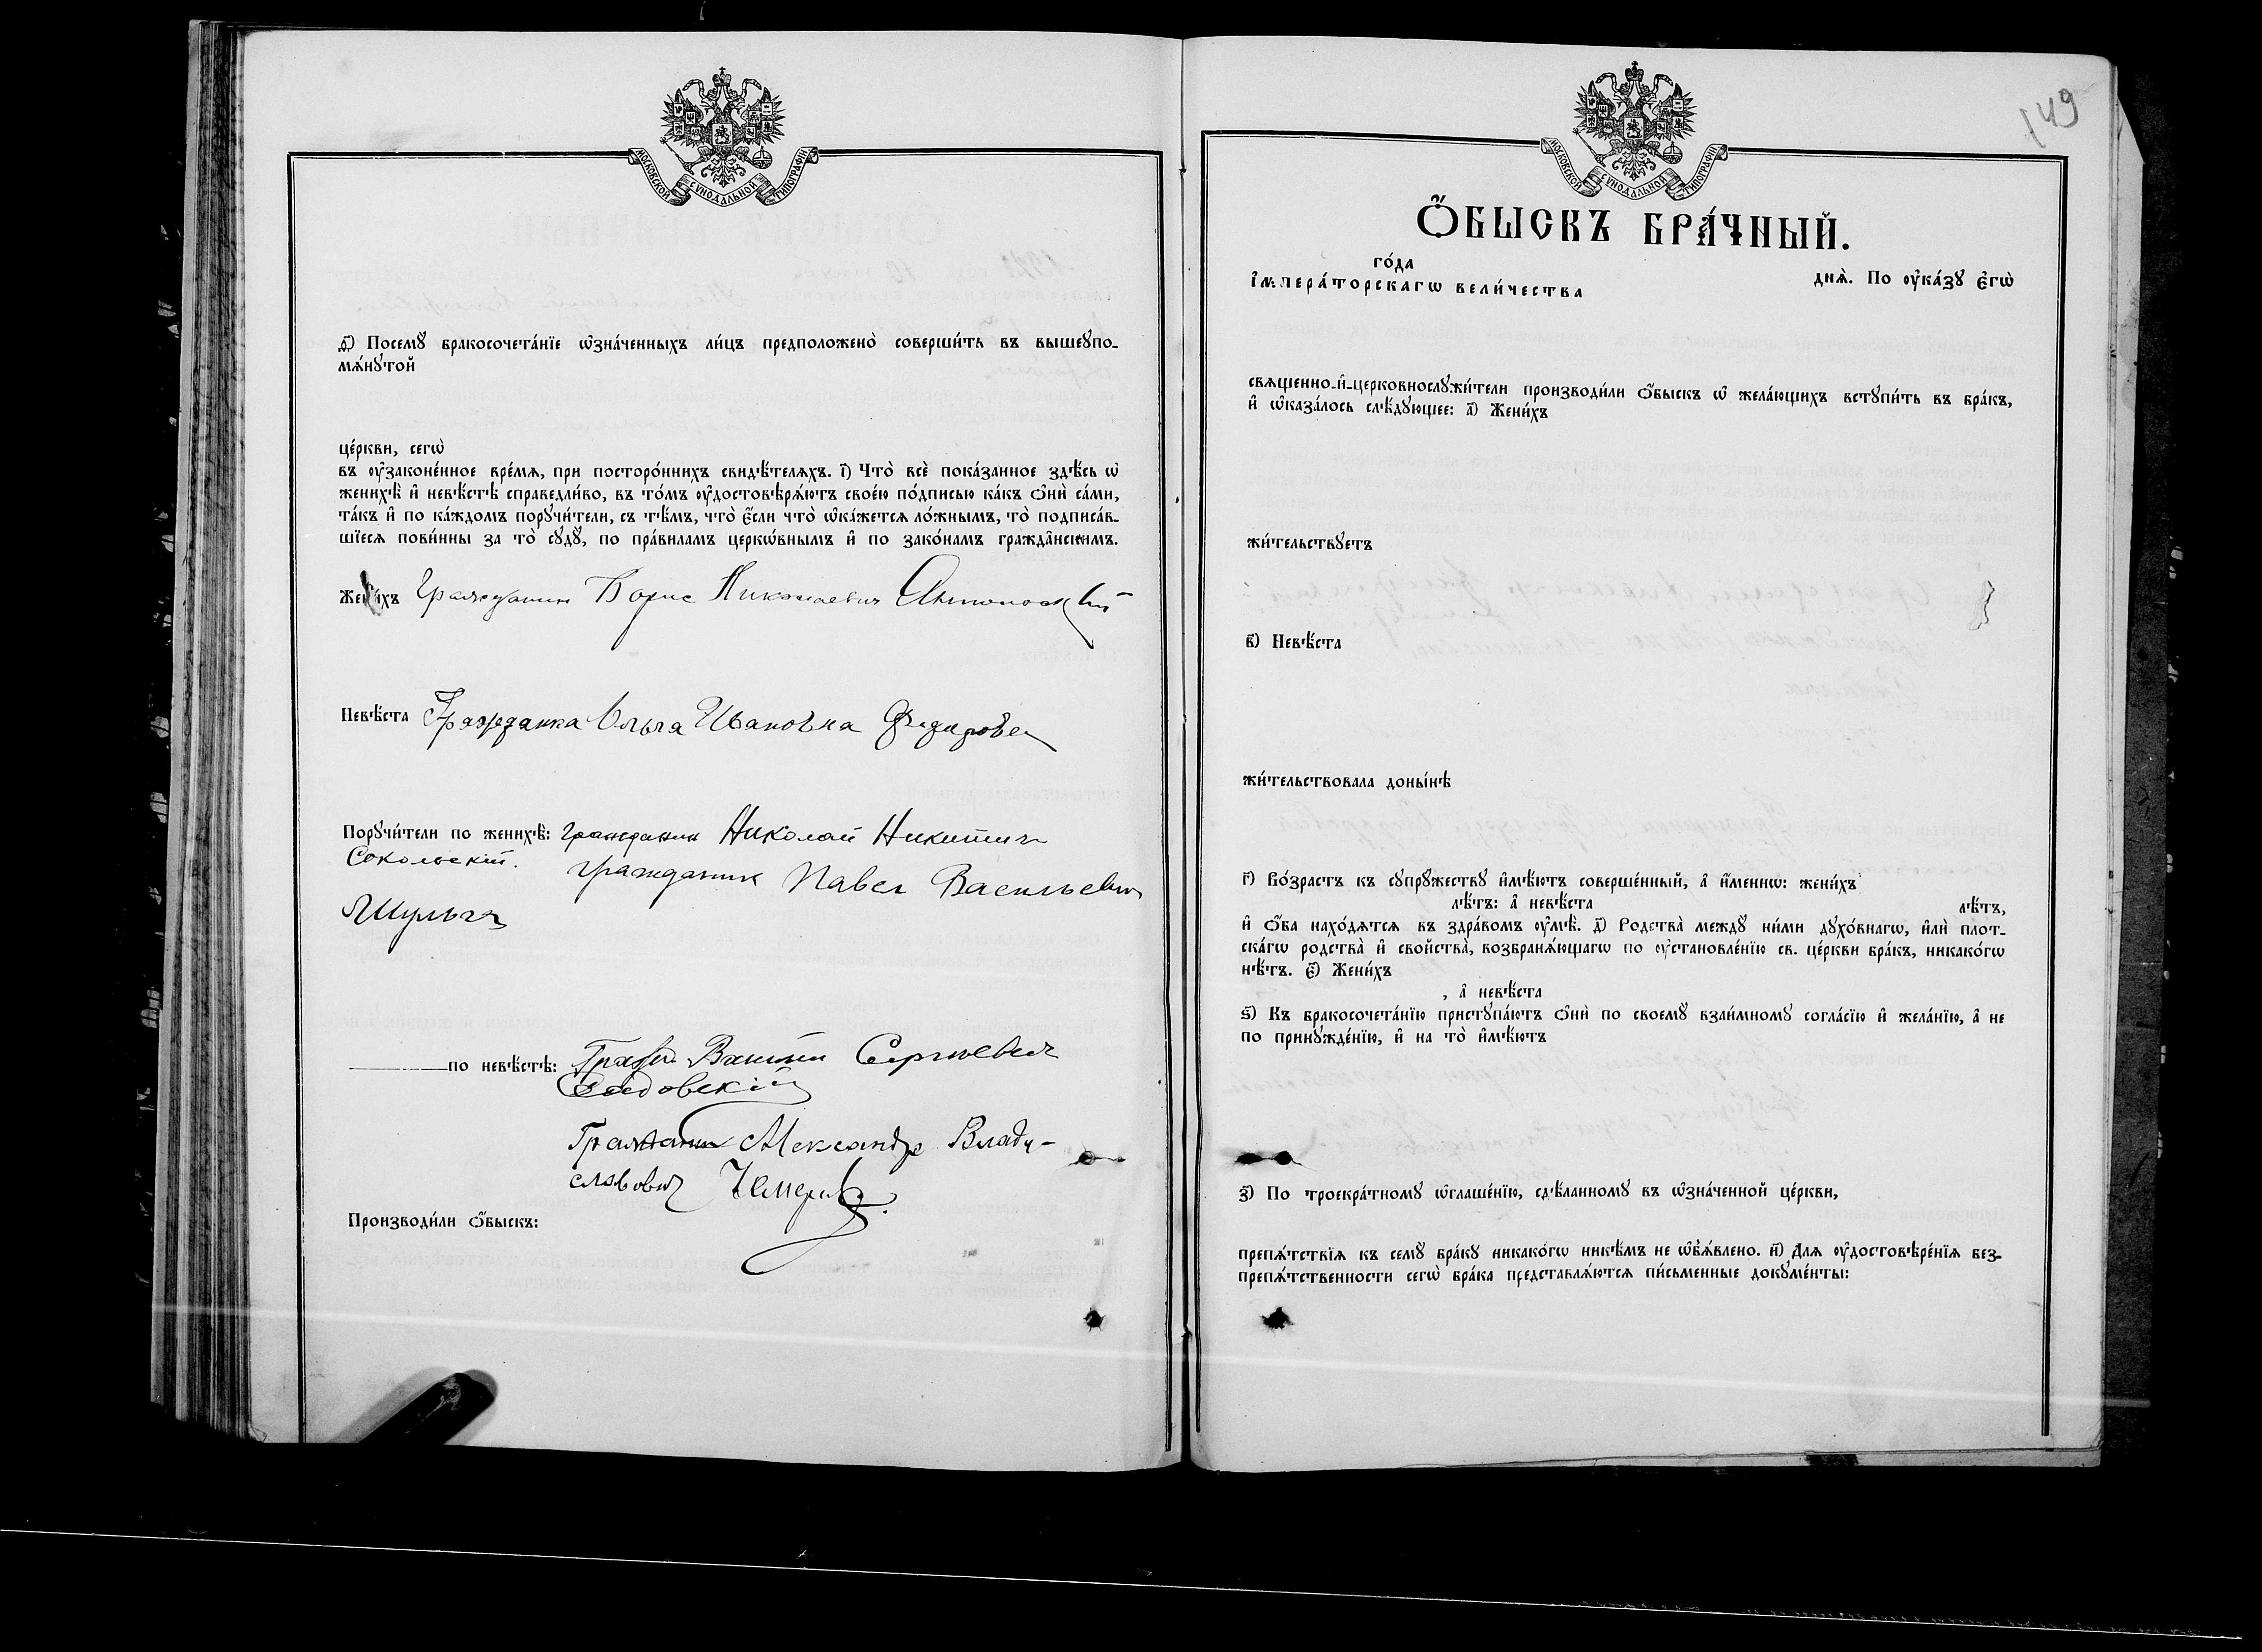 МОСКОВСКОЙ СѴНОДАЛЬНОЙ ТИПОГРАФІИ
ѳ҃) Посемꙋ̀ бракосочета́нїе ѡ҆зна́ченныхъ ли́цъ предположено̀ соверши́ть въ вышеꙋпо-
мѧ́нꙋтой
це́ркви, сегѡ̀
въ ᲂу҆законе́нное вре́мѧ, при посторо́ннихъ свидѣ́телѧхъ. і҃) Что̀ всѐ пока́занное здѣ́сь ѡ҆
женихѣ̀ и҆ невѣ́стѣ справедли́во, въ то́мъ ᲂу҆достовѣрѧ́ютъ свое́ю по́дписью ка́къ ѻ҆нѝ са́ми,
та́къ и҆ по ка́ждомъ порꙋчи́тели, съ тѣ́мъ, что̀ є҆́сли что̀ ѡ҆ка́жетсѧ ло́жнымъ, то̀ подписа́в-
шїесѧ пови́нны за то̀ сꙋдꙋ̀, по пра́виламъ церкѡ́внымъ и҆ по зако́намъ гражда̑нскимъ.
Жени́хъ Гражданин Борис Николаевич Антоновский
Невѣ́ста Гражданка Ольга Ивановна Федорова
Порꙋчи́тели по женихѣ̀: гражданин Николай Никитич
Сокольскій.
гражданин Павел Васильевич
Шульга
по невѣ́стѣ: Гражд. Сергѣевич
Садовскій
Гражданин Александр Влади-
славович
Производи́ли ѻ҆́быскъ:
149
МОСКОВСКОЙ СѴНОДАЛЬНОЙ ТИПОГРАФІИ
Ѻ҆́БЫСКЪ БРА́ЧНЫЙ.
го́да
днѧ̀. По ᲂу҆ка́зꙋ є҆гѡ̀
і҆мпера́торскагѡ вели́чества
свѧще́нно-и҆-церковнослꙋжи́тели производи́ли ѻ҆́быскъ ѡ҆ жела́ющихъ встꙋпи́ть въ бра́къ,
и҆ ѡ҆каза́лось слѣ́дꙋющее: а҃) Жени́хъ
жи́тельствꙋетъ
в҃) Невѣ́ста
жи́тельствовала доны́нѣ
г҃) Во́зрастъ къ сꙋпрꙋ́жествꙋ и҆мѣ́ютъ соверше́нный, а҆ и҆́меннѡ: жени́хъ
лѣ́тъ: а҆ невѣ́ста лѣ́тъ,
и҆ ѻ҆́ба нахо́дѧтсѧ въ здра́вомъ ᲂу҆мѣ̀. д҃) Родства̀ междꙋ̀ ни́ми дꙋхо́внагѡ, и҆лѝ плот-
ска́гѡ родства̀ и҆ свойства̀, возбранѧ́ющагѡ по ᲂу҆становле́нїю св. це́ркви бра́къ, никако́гѡ
нѣ́тъ. є҃) Жени́хъ
, а҆ невѣ́ста
ѕ҃) Къ бракосочета́нїю пристꙋпа́ютъ ѻ҆нѝ по своемꙋ̀ взаи́мномꙋ согла́сїю и҆ жела́нїю, а҆ не
по принꙋжде́нїю, и҆ на то̀ и҆мѣ́ютъ
з҃) По троекра́тномꙋ ѡ҆глаше́нїю, сдѣ́ланномꙋ въ ѡ҆зна́ченной це́ркви,
препѧ́тствїѧ къ семꙋ̀ бра́кꙋ никако́гѡ никѣ́мъ не ѡ҆б̾ѧ́влено. и҃) Длѧ ᲂу҆достовѣре́нїѧ без-
препѧ́тственности сегѡ̀ бра́ка представлѧ́ютсѧ пи́сьменные докꙋме́нты: